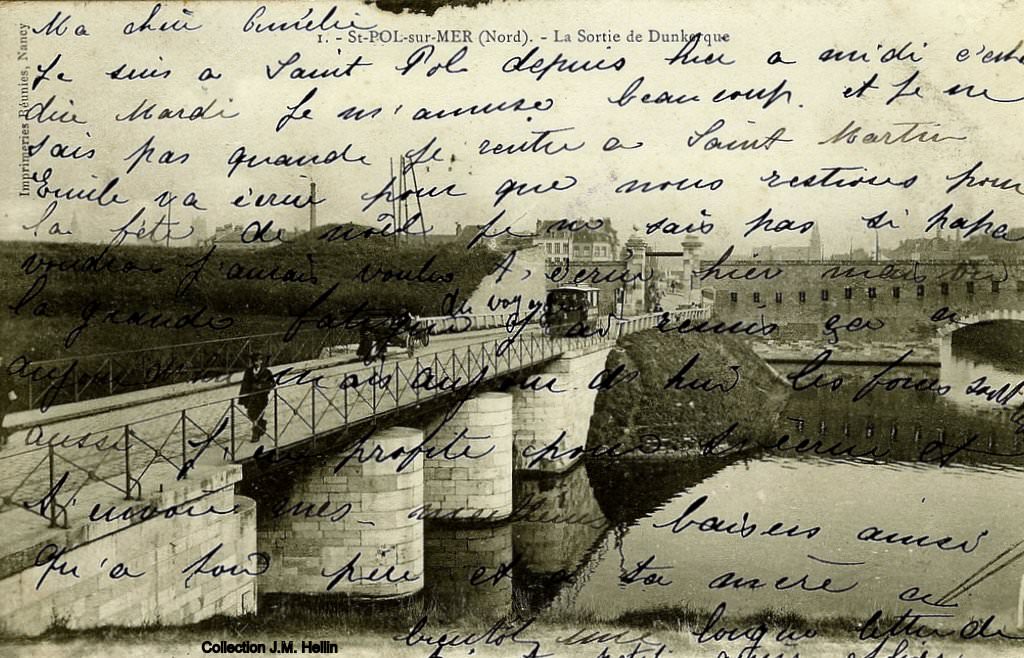 Imprimeries Réunies, Nancy
1. - St-POL-sur-MER (Nord). - La Sortie de Dunkerque
Ma chèr Emélie
Je suis a Saint Pol depuis hier a midi c'est
dire Mardi Je m'amuse beaucoup. et Je ne
sais pas quande Je rentre a Saint Martin
Emile va écrire pour que nous restions pour
la fête de noël Je ne sais pas si papa
voudra J'aurais voulus t'écrire hier mais
la grande fatigue du voyage J'ai remis ça a
aujourd'hui mais aujourd'hui les forces sont
aussi J'en profite pour t'écrire et
t'envoie mes meilleurs baisers ainsi
qu'a ton père et a ta mère a
bientôt une longue lettre de
Collection J.M. Hellin